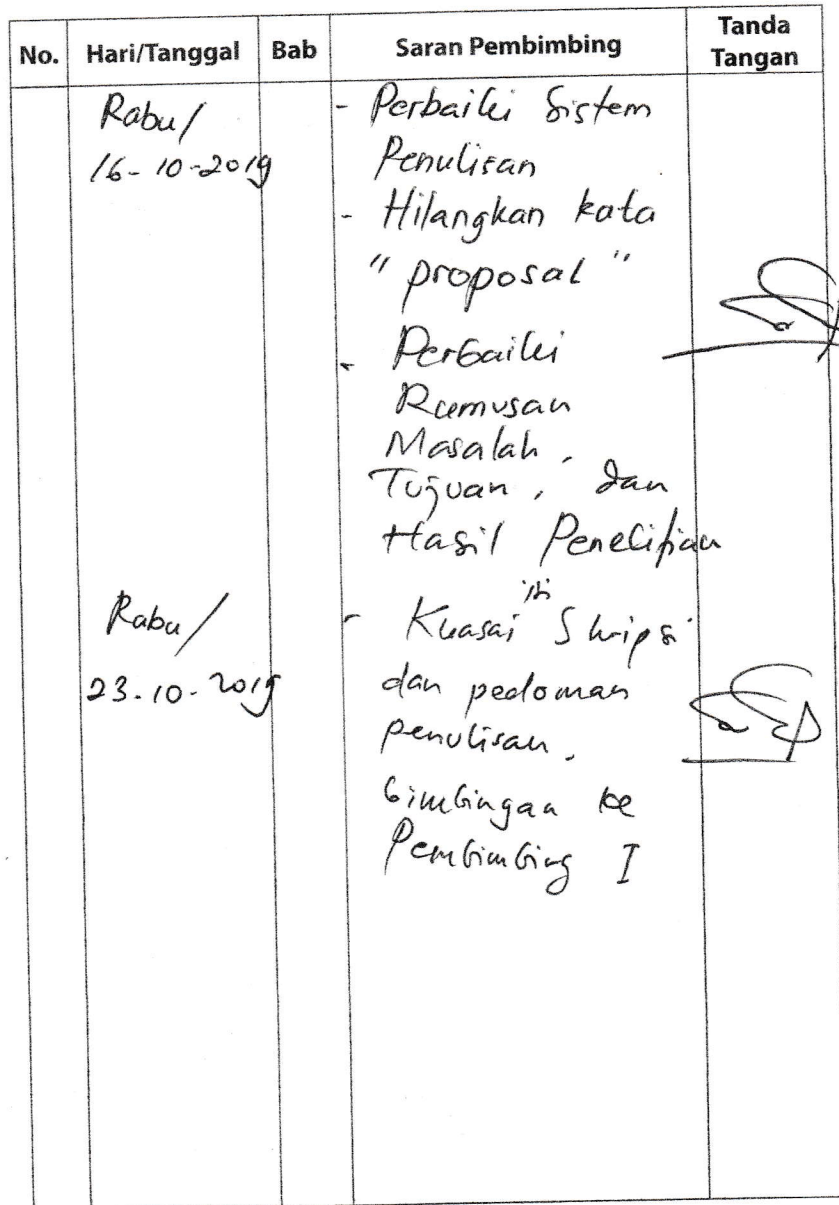 No. Hari/Tanggal Bab Saran Pembimbing Tanda Tangan
Rabu/ - Perbaiki Sistem
16-10-2019 Penulisan
- Hilangkan kata
"proposal"
- Perbaiki
Rumusan
Masalah,
Tujuan, dan
Hasil Penelitian
Rabu/ - Kuasai isi Skripsi
23-10-2019 dan pedoman
penulisan.
bimbingan ke
Pembimbing I